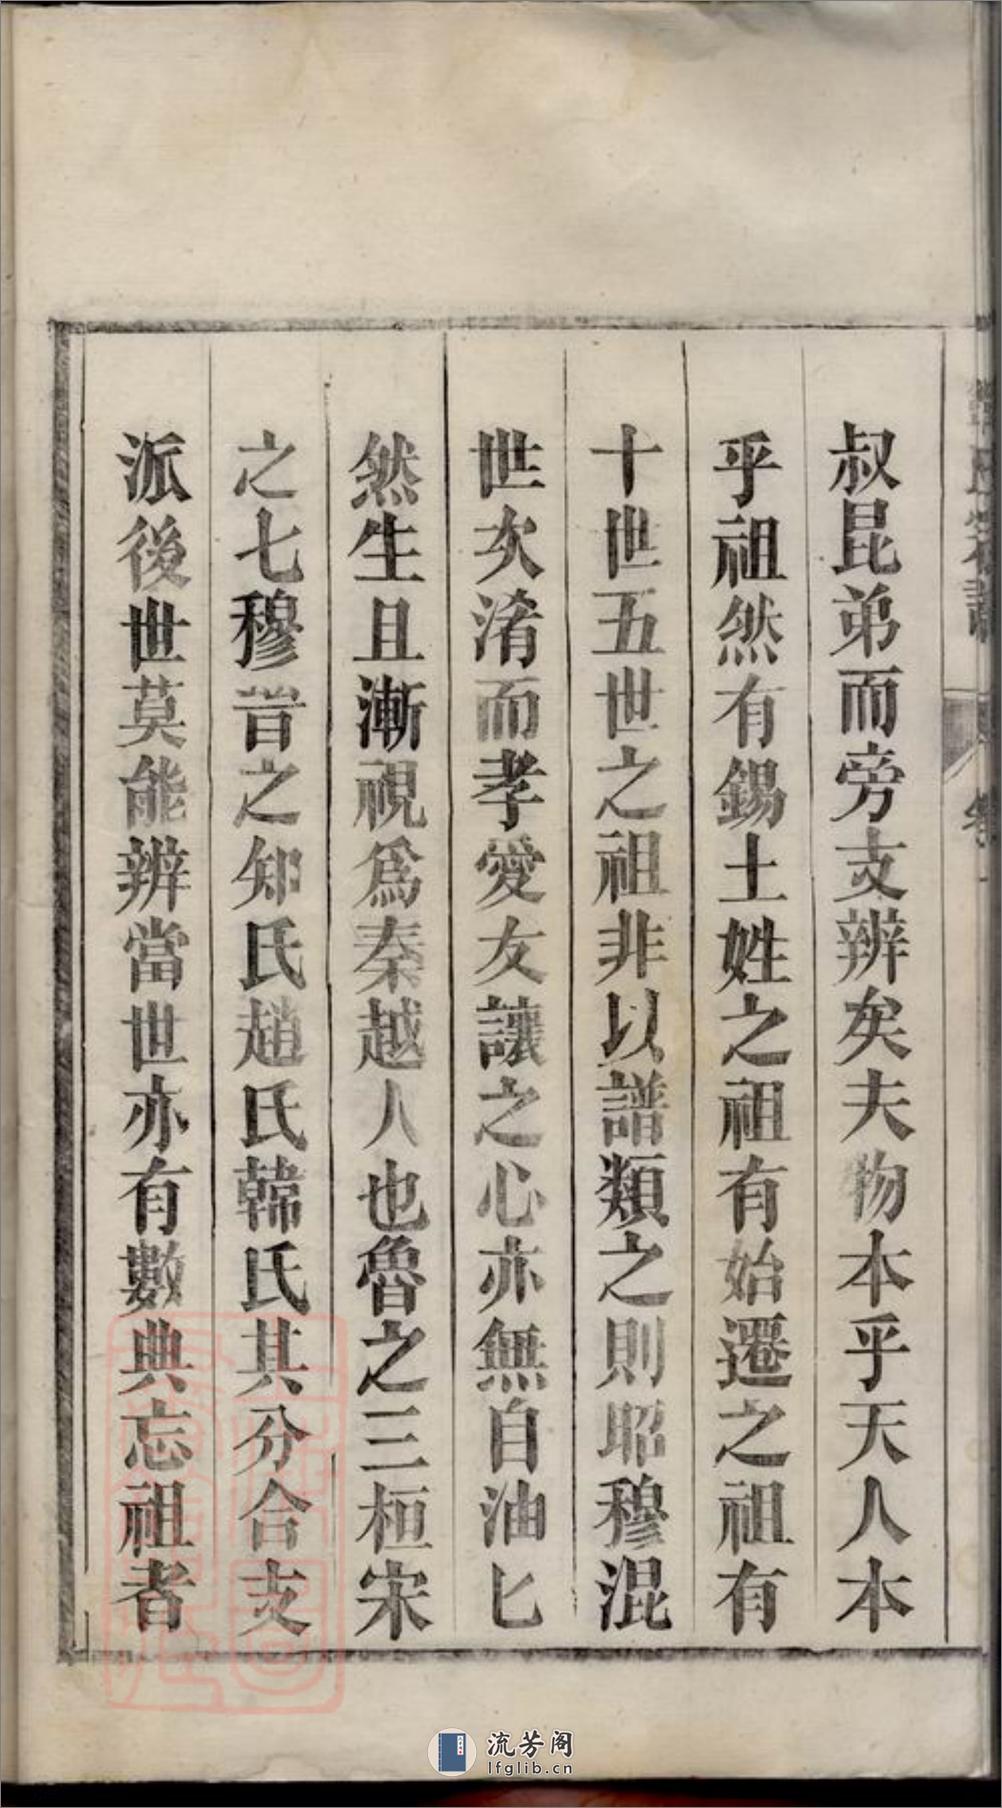 叔昆弟而旁支辨矣夫物本乎天人本
乎祖然有錫土姓之祖有始遷之祖有
十世五世之祖非以譜類之則昭穆混
世次淆而孝愛友讓之心亦無自油匕
然生且漸視爲秦越人也魯之三桓宋
之七穆晉之知氏趙氏韓氏其分合支
派後世莫能辨當世亦有數典忘祖者
流芳阁
lfglib.cn